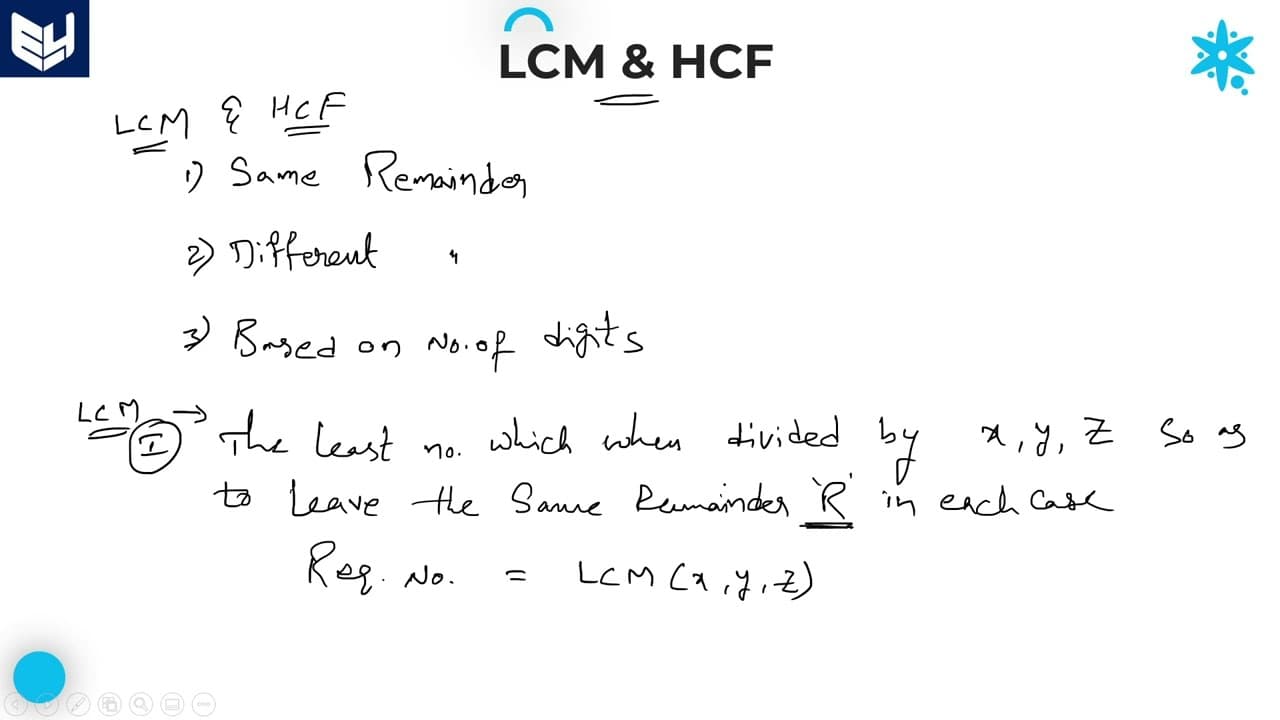 EH
LCM & HCF
LCM & HCF
1) Same Remainder
2) Different "
3) Based on No. of digits
LCM
I → The least no. which when divided by x, y, z so as
to leave the same Remainder 'R' in each case
Req. No. = LCM (x, y, z)